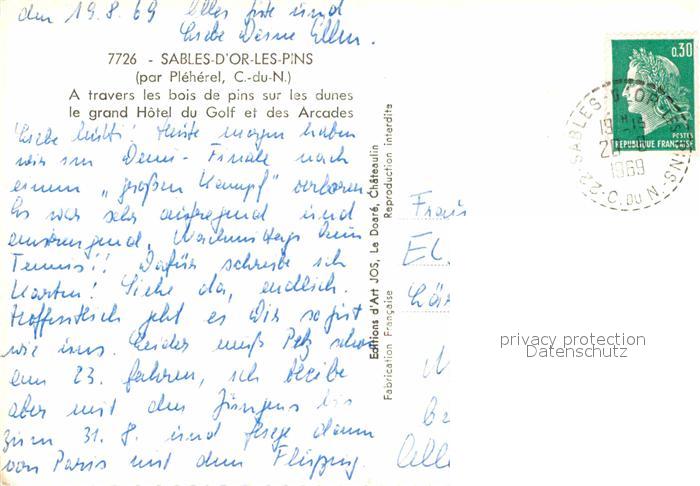 den 19.8.69 Alles Gute und
Liebe Deine Ellen.
7726 - SABLES-D'OR-LES-PINS
(par Pléhérel, C.-du-N.)
A travers les bois de pins sur les dunes
le grand Hôtel du Golf et des Arcades
Liebe Mutti! Heute morgen haben
wir im Demi-Finale nach
einem "großen Kampf" verloren
Es war sehr aufregend und
anstrengend. Nachmittags kein
Tennis!! Dafür schreibe ich
Karten! Siehe da, endlich.
Hoffentlich geht es Dir so gut
wie uns. Leider muß schon
am 23. fahren, ich bleibe
aber mit den Jungens bis
zum 31.8. und fliege dann
von Paris mit dem Flugzeug.
Editions d'Art JOS, Le Doaré, Châteaulin
Fabrication Française
Reproduction interdite
Frau
El
0,30
POSTES
REPUBLIQUE FRANÇAISE
22 SABLES-D'OR-LES-PINS
C. DU N.
1969
privacy protection
Datenschutz